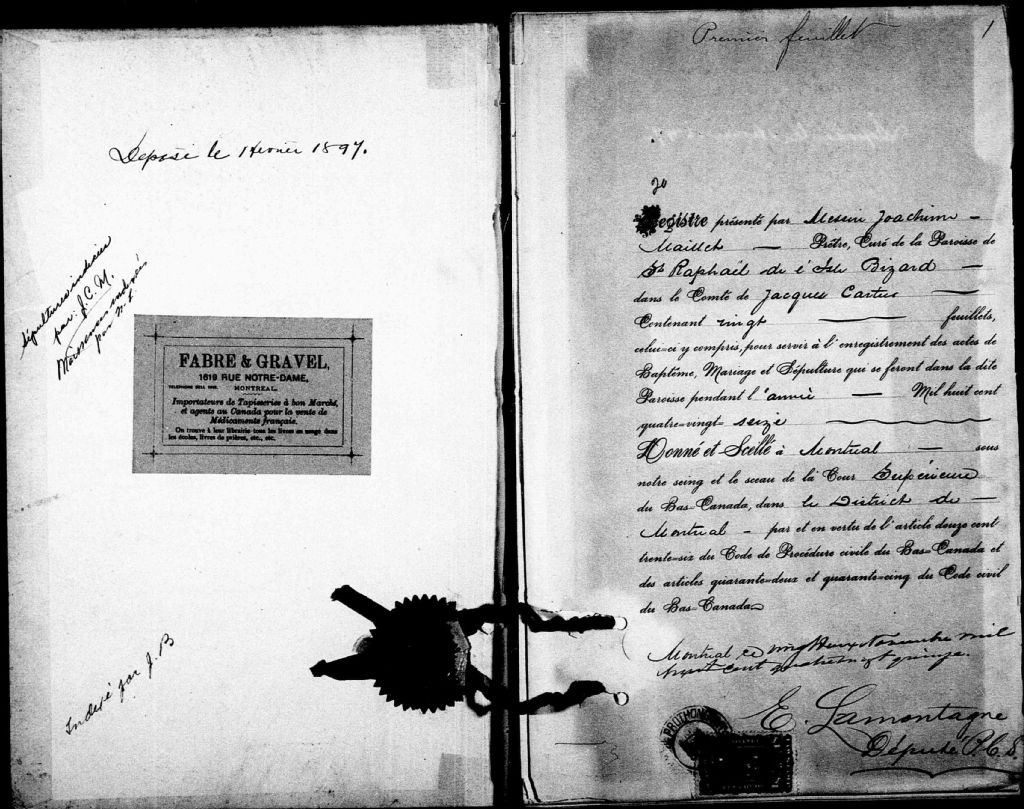 Déposé le 1 février 1897.
Sépultures indexées
par J.C.M.
par N. L.
FABRE & GRAVEL,
1619 RUE NOTRE-DAME,
TELEPHONE BELL
MONTREAL.
Importateurs de Tapisseries à bon Marché,
et agents au Canada pour la vente de
Médicaments français.
On trouve à leur librairie tous les livres en usage dans
les écoles, livres de prières, etc., etc.
Indexé par J. B
Premier feuillet
1
Registre présenté par Messire Joachim
Maillet Prêtre, Curé de la Paroisse de
St Raphaël de l'Isle Bizard
dans le Comté de Jacques Cartier
Contenant vingt feuillets,
celui-ci y compris, pour servir à l'enregistrement des actes de
Baptême, Mariage et Sépulture qui se feront dans la dite
Paroisse pendant l'année Mil huit cent
quatre-vingt-seize
Donné et Scellé à Montréal sous
notre seing et le sceau de la Cour Supérieure
du Bas-Canada, dans le District de
Montréal par et en vertu de l'article douze cent
trente-six du Code de Procédure civile du Bas-Canada et
des articles quarante-deux et quarante-cinq du Code civil
du Bas-Canada
Montréal ce vingt deux Novembre mil
huit cent quatrevingt quinze.
E. Lamontagne
Député P.C.S.
PROTHONO